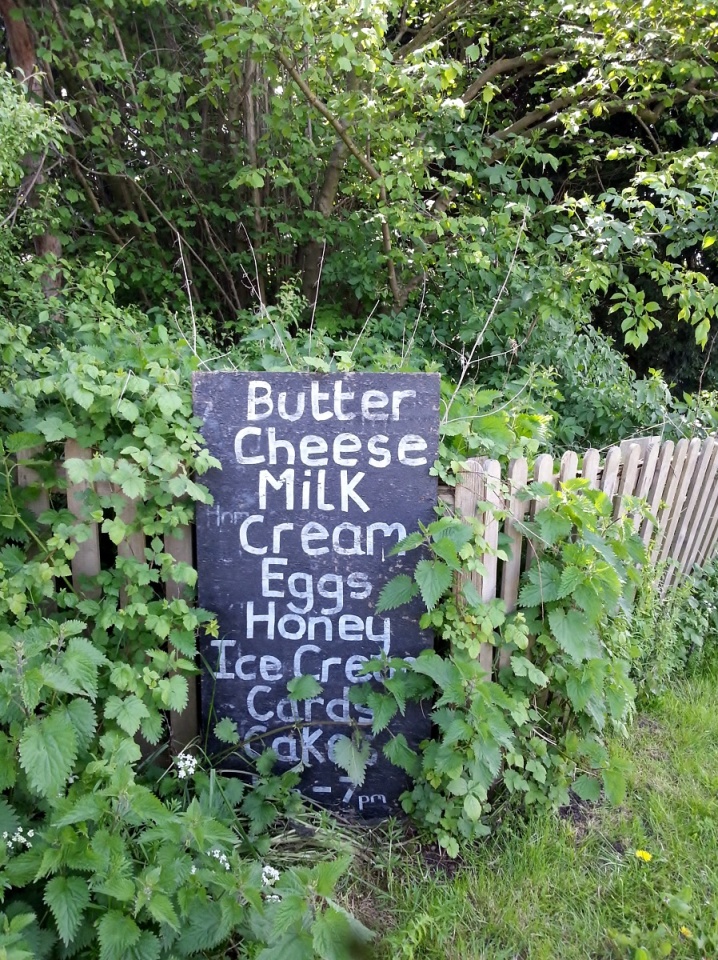 Butter
Cheese
MiLK
Cream
Eggs
Honey
Ice Cream
Cards
Cakes
- 7pm